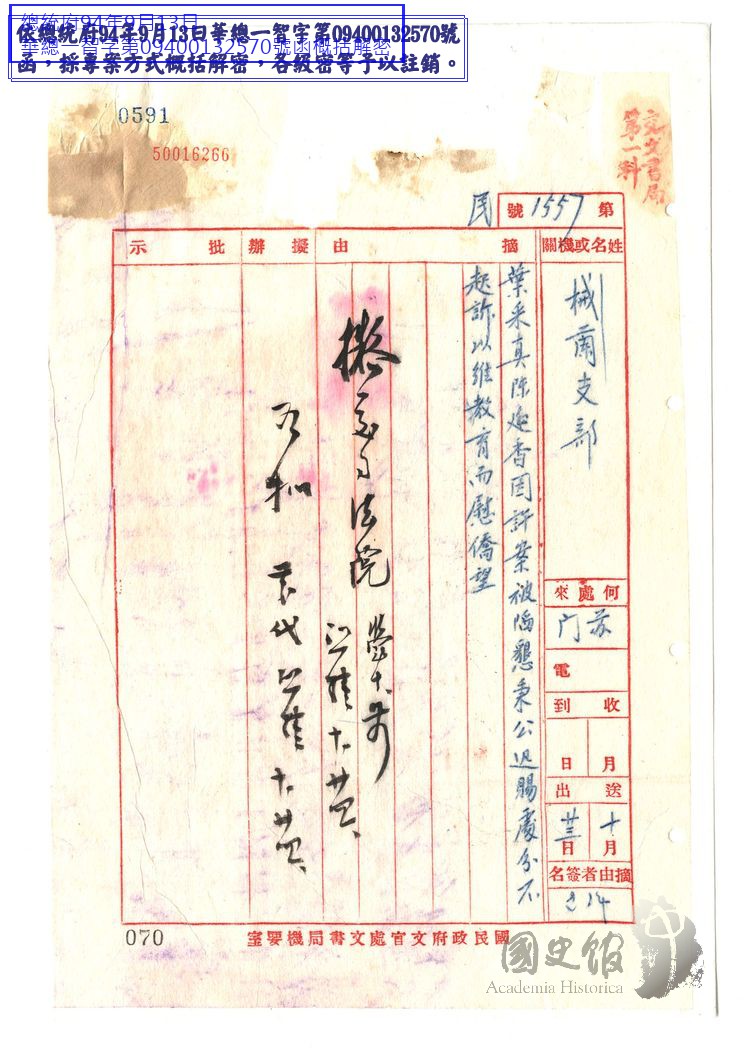 總統府94年9月13日
華總一智字第09400132570號函概括解密
依總統府94年9月13日華總一智字第09400132570號
函，採專案方式概括解密，各級密等予以註銷。
0591
50016266
交文書局
第一科
第1557號
民
姓名或機關
械爾支部
何處來
苏门
電
收到
月
日
送出
十月
廿三日
摘由者簽名
摘由
葉采真陳延香因許案被陷懇秉公迅賜處分不
起訴以維教育而慰僑望
擬辦
擬交司法院
批示
國民政府文官處文書局機要室
070
國史館
Academia Historica